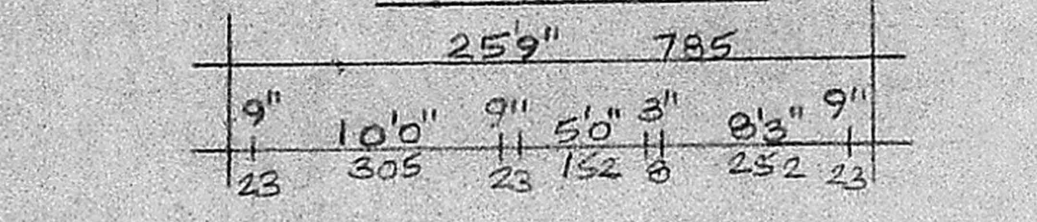 25'9" 785
9" 10'0" 9" 5'0" 3" 8'3" 9"
23 305 23 152 8 252 23